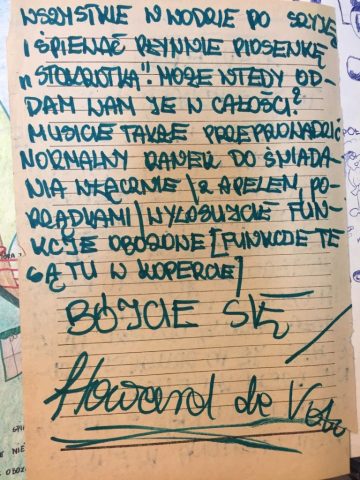 WSZYSTKIE W WODZIE PO SZYJĘ
I ŚPIEWAĆ PŁYNNIE PIOSENKĘ
„STOKROTKA". MOŻE WTEDY OD-
DAM WAM JE W CAŁOŚCI?
MUSICIE TAKŻE PRZEPROWADZIĆ
NORMALNY RANEK DO ŚNIADA-
NIA WŁĄCZNIE /Z APELEM, PO-
RZĄDKAMI/ WYLOSUJCIE FUN-
KCJE OBOZOWE [FUNKCJE TE
SĄ TU W KOPERCIE]
BÓJCIE SIĘ
Howard de